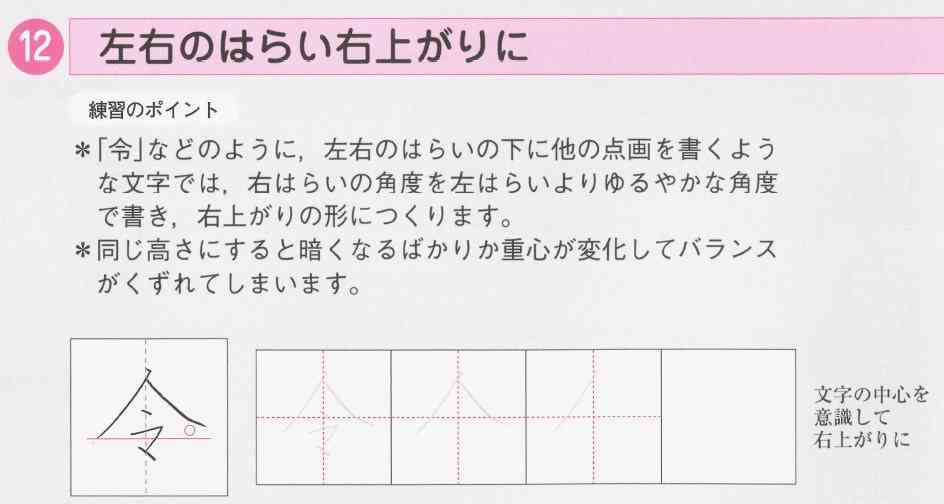 12 左右のはらい右上がりに
練習のポイント
*「令」などのように，左右のはらいの下に他の点画を書くよう
な文字では，右はらいの角度を左はらいよりゆるやかな角度
で書き，右上がりの形につくります。
*同じ高さにすると暗くなるばかりか重心が変化してバランス
がくずれてしまいます。
令
令
文字の中心を
意識して
右上がりに